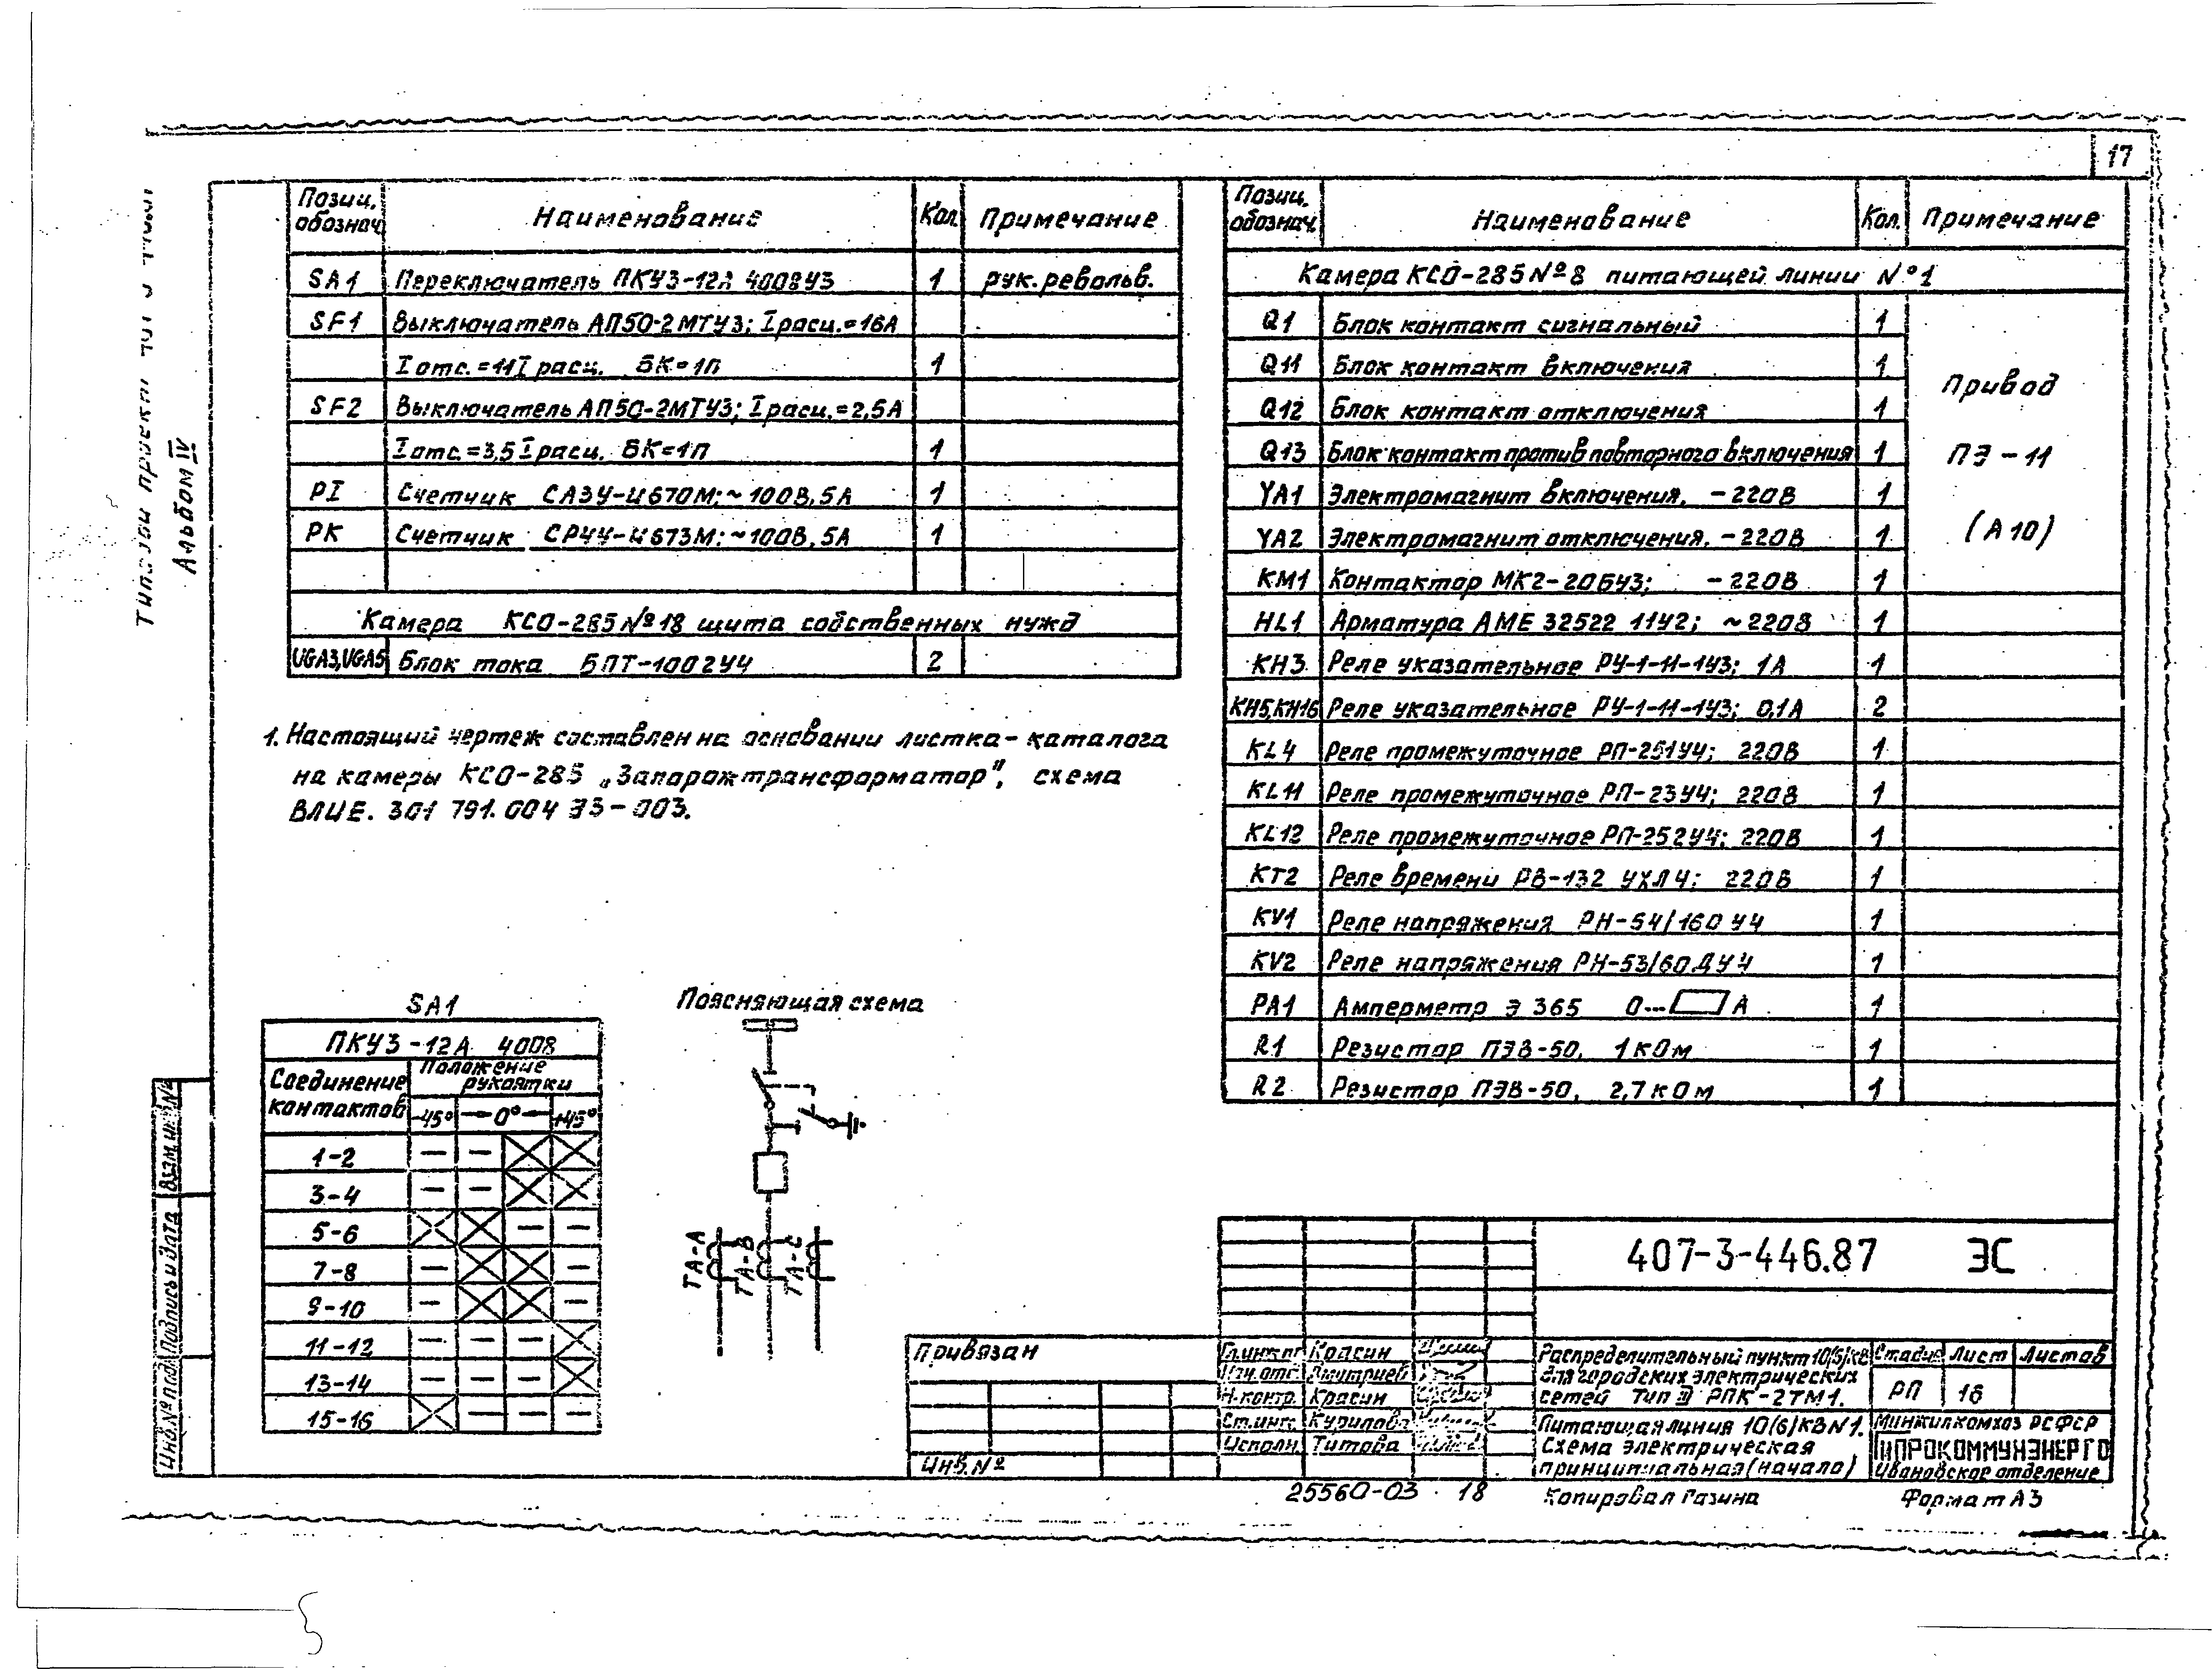 17
Альбом IV
Позиц. обознач. Наименование Кол. Примечание
SA1 Переключатель ПКУ3-12А 4008У3 1 рук. револьв.
SF1 Выключатель АП50-2МТУ3; Iрасц.=16А
Iотс.=11Iрасц. БК=1П 1
SF2 Выключатель АП50-2МТУ3; Iрасц.=2,5А
Iотс.=3,5Iрасц. БК=1П 1
PI Счетчик САЗУ-И670М; ~100В, 5А 1
PK Счетчик СРЧУ-И673М; ~100В, 5А 1
Камера КСО-285 №18 щита собственных нужд
UGA3, UGA5 Блок тока БПТ-1002У4 2
1. Настоящий чертеж составлен на основании листка-каталога
на камеры КСО-285 „Запорожтрансформатор", схема
ВЛИЕ. 301 791. 004 Э3-003.
SA1
ПКУ3-12А 4008
Соединение контактов Положение рукоятки
-45° 0° +45°
1-2 — —
3-4 — —
5-6 — —
7-8 — —
9-10 — —
11-12 — — —
13-14 — — —
15-16 — — —
Поясняющая схема
TA-A TA-B TA-C
Позиц. обознач. Наименование Кол. Примечание
Камера КСО-285 №8 питающей линии №1
Q1 Блок контакт сигнальный 1
Q11 Блок контакт включения 1
Q12 Блок контакт отключения 1
Q13 Блок контакт против повторного включения 1
YA1 Электромагнит включения, -220В 1
YA2 Электромагнит отключения, -220В 1
KM1 Контактор МК2-20БУ3; -220В 1
Привод
ПЭ-11
(А10)
HL1 Арматура АМЕ 32522 11У2; ~220В 1
KH3 Реле указательное РУ-1-11-1У3; 1А 1
KH5, KH16 Реле указательное РУ-1-11-1У3; 0,1А 2
KL4 Реле промежуточное РП-251У4; 220В 1
KL11 Реле промежуточное РП-23У4; 220В 1
KL12 Реле промежуточное РП-252У4; 220В 1
KT2 Реле времени РВ-132 УХЛ4; 220В 1
KV1 Реле напряжения РН-54/160 У4 1
KV2 Реле напряжения РН-53/60ДУ4 1
PA1 Амперметр Э 365 0... А 1
R1 Резистор ПЭВ-50, 1 кОм 1
R2 Резистор ПЭВ-50, 2,7 кОм 1
407-3-446.87 ЭС
Привязан
Инв. №
Гл.инж.пр Красин
Нач.отд. Дмитриев
Н.контр. Красин
Ст.инж. Курилова
Исполн. Титова
Распределительный пункт 10(6)кВ
для городских электрических
сетей Тип III РПК-2ТМ1.
Стадия Лист Листов
РП 16
Питающая линия 10(6)кВ №1.
Схема электрическая
принципиальная (начало)
Минжилкомхоз РСФСР
ГИПРОКОММУНЭНЕРГО
Ивановское отделение
25560-03 18
Копировал Газина
Формат А3
Взам.инв.№
Подпись и дата
Инв.№ подл.